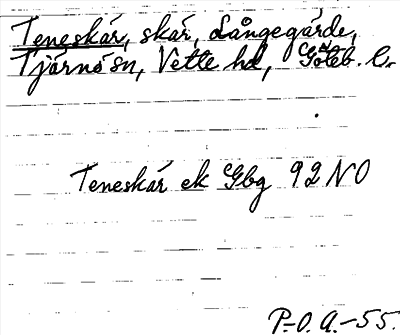 Teneskär, skär, Långegärde,
Tjärnö sn, Vette hd, Göteb. l.
Teneskär ek Gbg 92 NO
P.-O. A. -55.